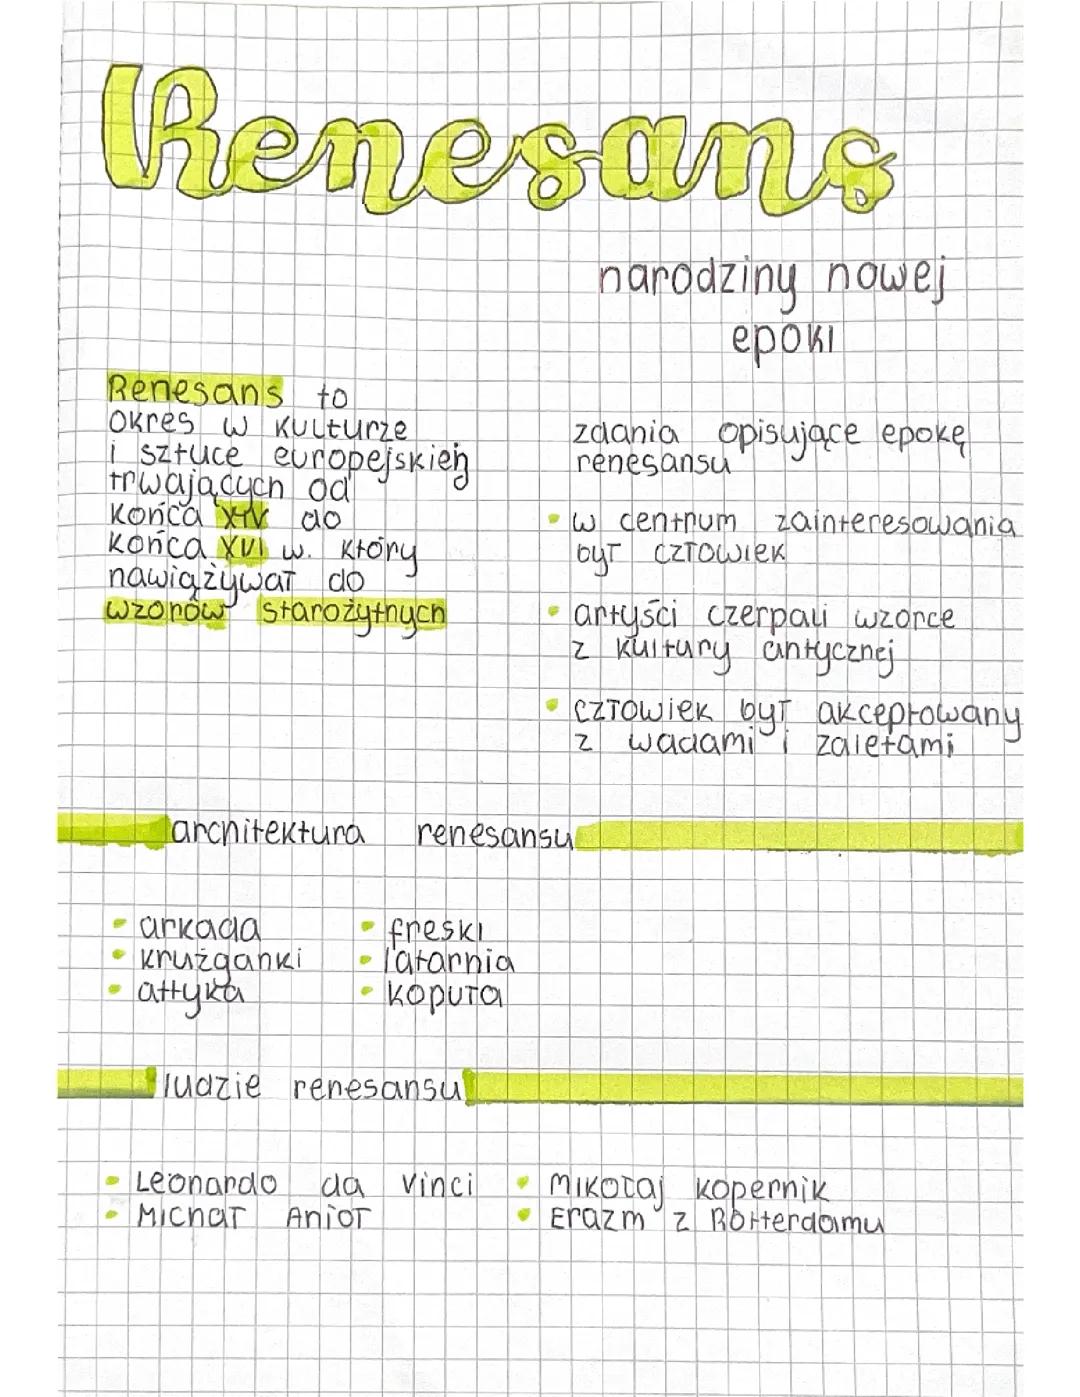 Renesans
narodziny nowej
epoki
Renesans to
okres w kulturze
i sztuce europejskiej
trwających od
końca XIV do
końca XVI w. który
nawiązywał do
wzorów starożytnych
zdania opisujące epokę
renesansu
• w centrum zainteresowania
był człowiek
• artyści czerpali wzorce
z kultury antycznej
• człowiek był akceptowany
z wadami i zaletami
architektura renesansu
• arkada
• krużganki
• attyka
• freski
• latarnia
• kopuła
ludzie renesansu
• Leonardo da Vinci
• Michał Anioł
• Mikołaj kopernik
• Erazm z Rotterdamu